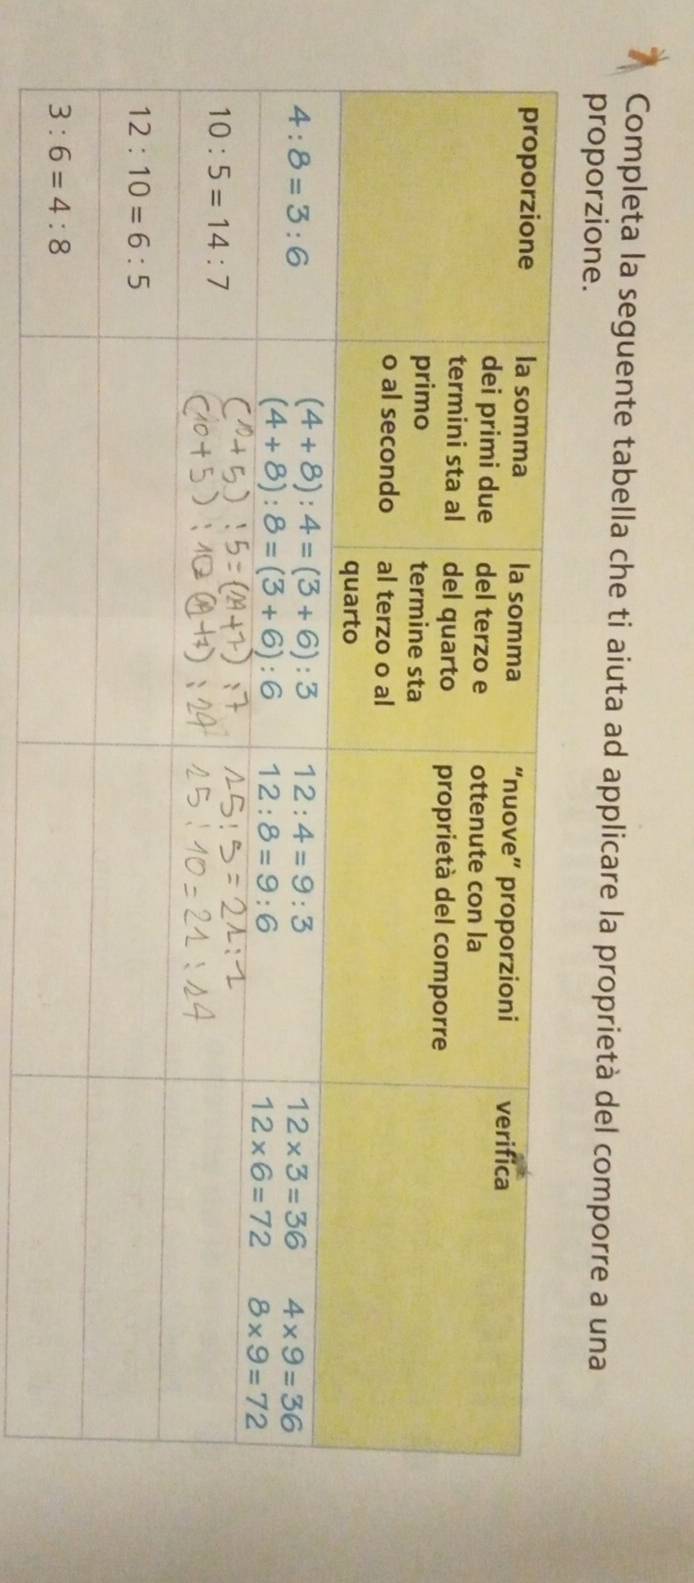 7 Completa la seguente tabella che ti aiuta ad applicare la proprietà del comporre a una
proporzione.
proporzione
la somma
dei primi due
termini sta al
primo
o al secondo
la somma
del terzo e
del quarto
termine sta
al terzo o al
quarto
"nuove" proporzioni
ottenute con la
proprietà del comporre
verifica
4 : 8 = 3 : 6
(4 + 8) : 4 = (3 + 6) : 3
(4 + 8) : 8 = (3 + 6) : 6
12 : 4 = 9 : 3
12 : 8 = 9 : 6
12 × 3 = 36 4 × 9 = 36
12 × 6 = 72 8 × 9 = 72
10 : 5 = 14 : 7
(10 + 5) : 5 = (14 + 7) : 7
(10 + 5) : 10 = (14 + 7) : 14
15 : 5 = 21 : 7
15 : 10 = 21 : 14
12 : 10 = 6 : 5
3 : 6 = 4 : 8